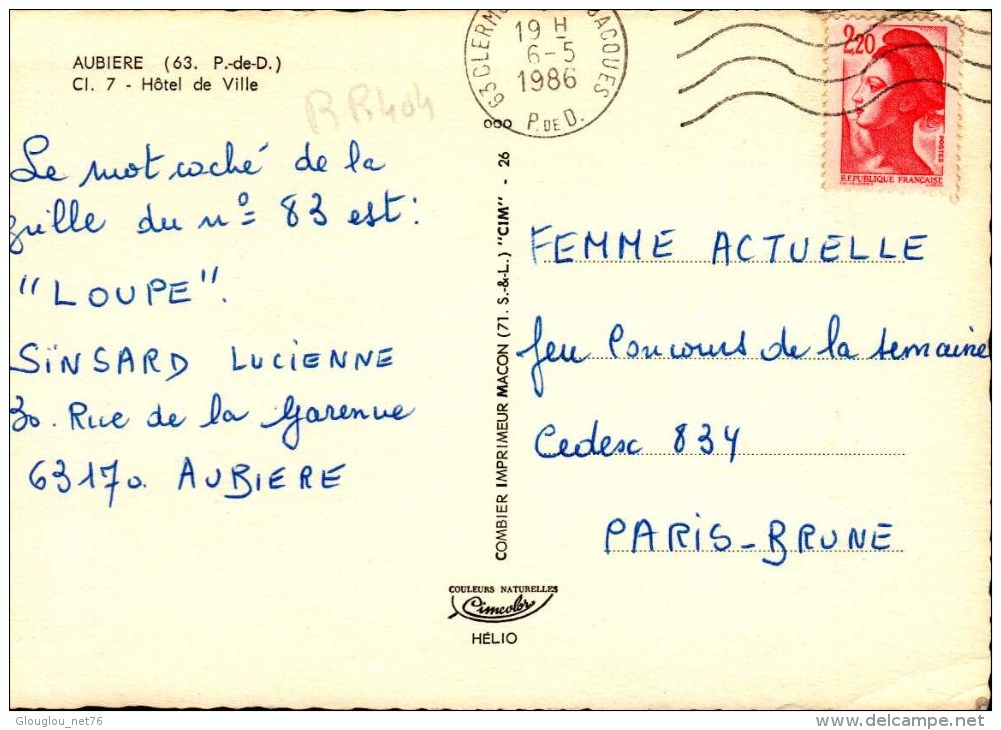 AUBIERE (63. P.-de-D.)
Cl. 7 - Hôtel de Ville
RR404
Le mot caché de la
grille du n° 83 est :
"LOUPE".
SINSARD LUCIENNE
30. Rue de la Garenne
63170. AUBIERE
63 CLERM JACQUES
19 H
6-5
1986
P. DE D.
2,20
POSTES
REPUBLIQUE FRANÇAISE
000
COMBIER IMPRIMEUR MACON (71. S.-&-L.) "CIM" - 26
FEMME ACTUELLE
Jeu Concours de la semaine
Cedesc 834
PARIS-BRUNE
COULEURS NATURELLES
Cimcolor
HÉLIO
Glouglou_net76
delcampe.net